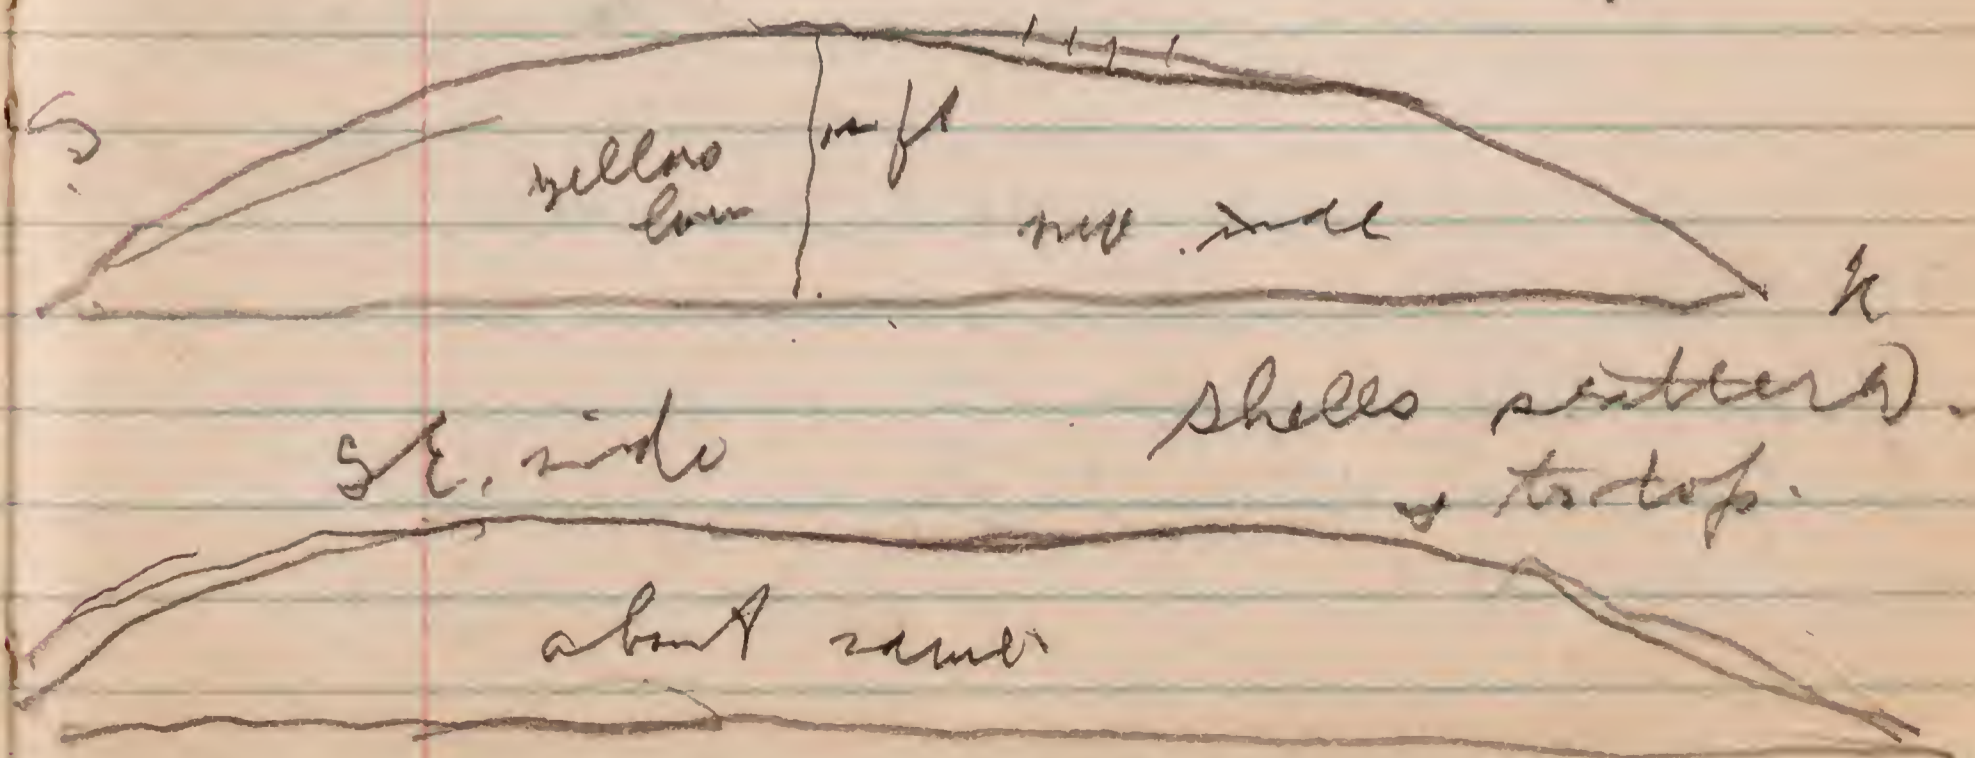 S.
yellow ft
side
N
S.E. side shells scattered.
to top.
about same